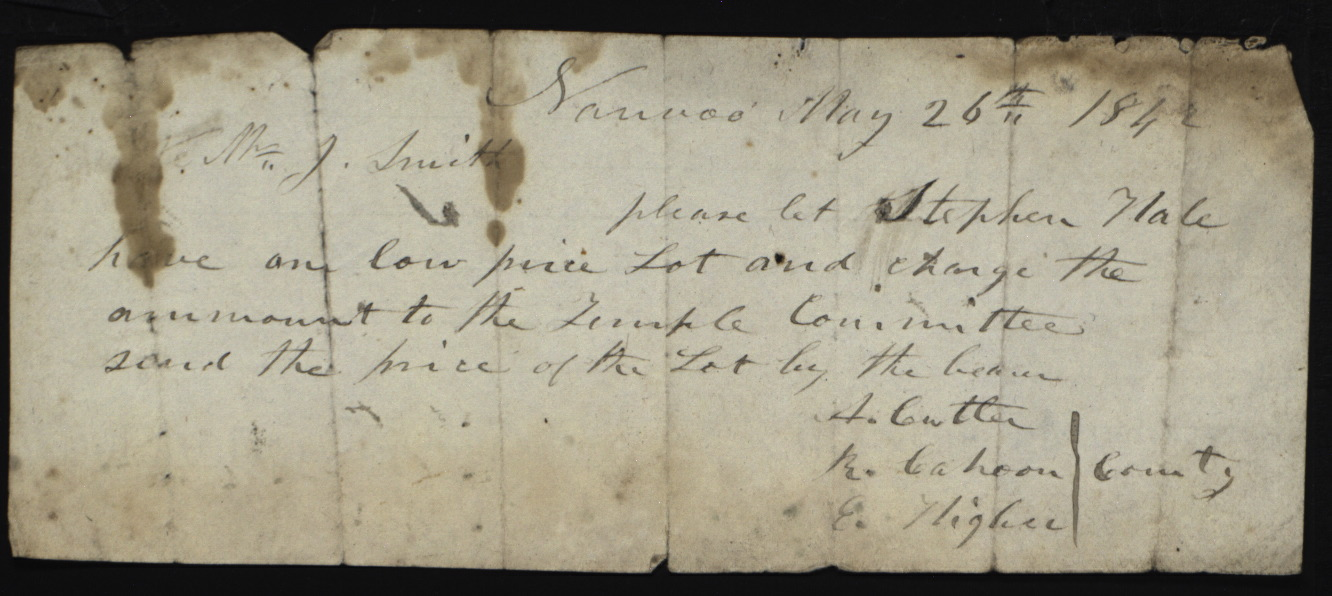 Nauvoo May 26th 1842
Mr. J. Smith
please let Stephen Hale
have one low price Lot and charge the
ammount to the Temple Committee
send the price of the Lot by the bearer
A. Cutler
R. Cahoon } Comty
E. Higbee